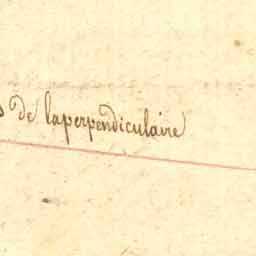 de laperpendiculaire